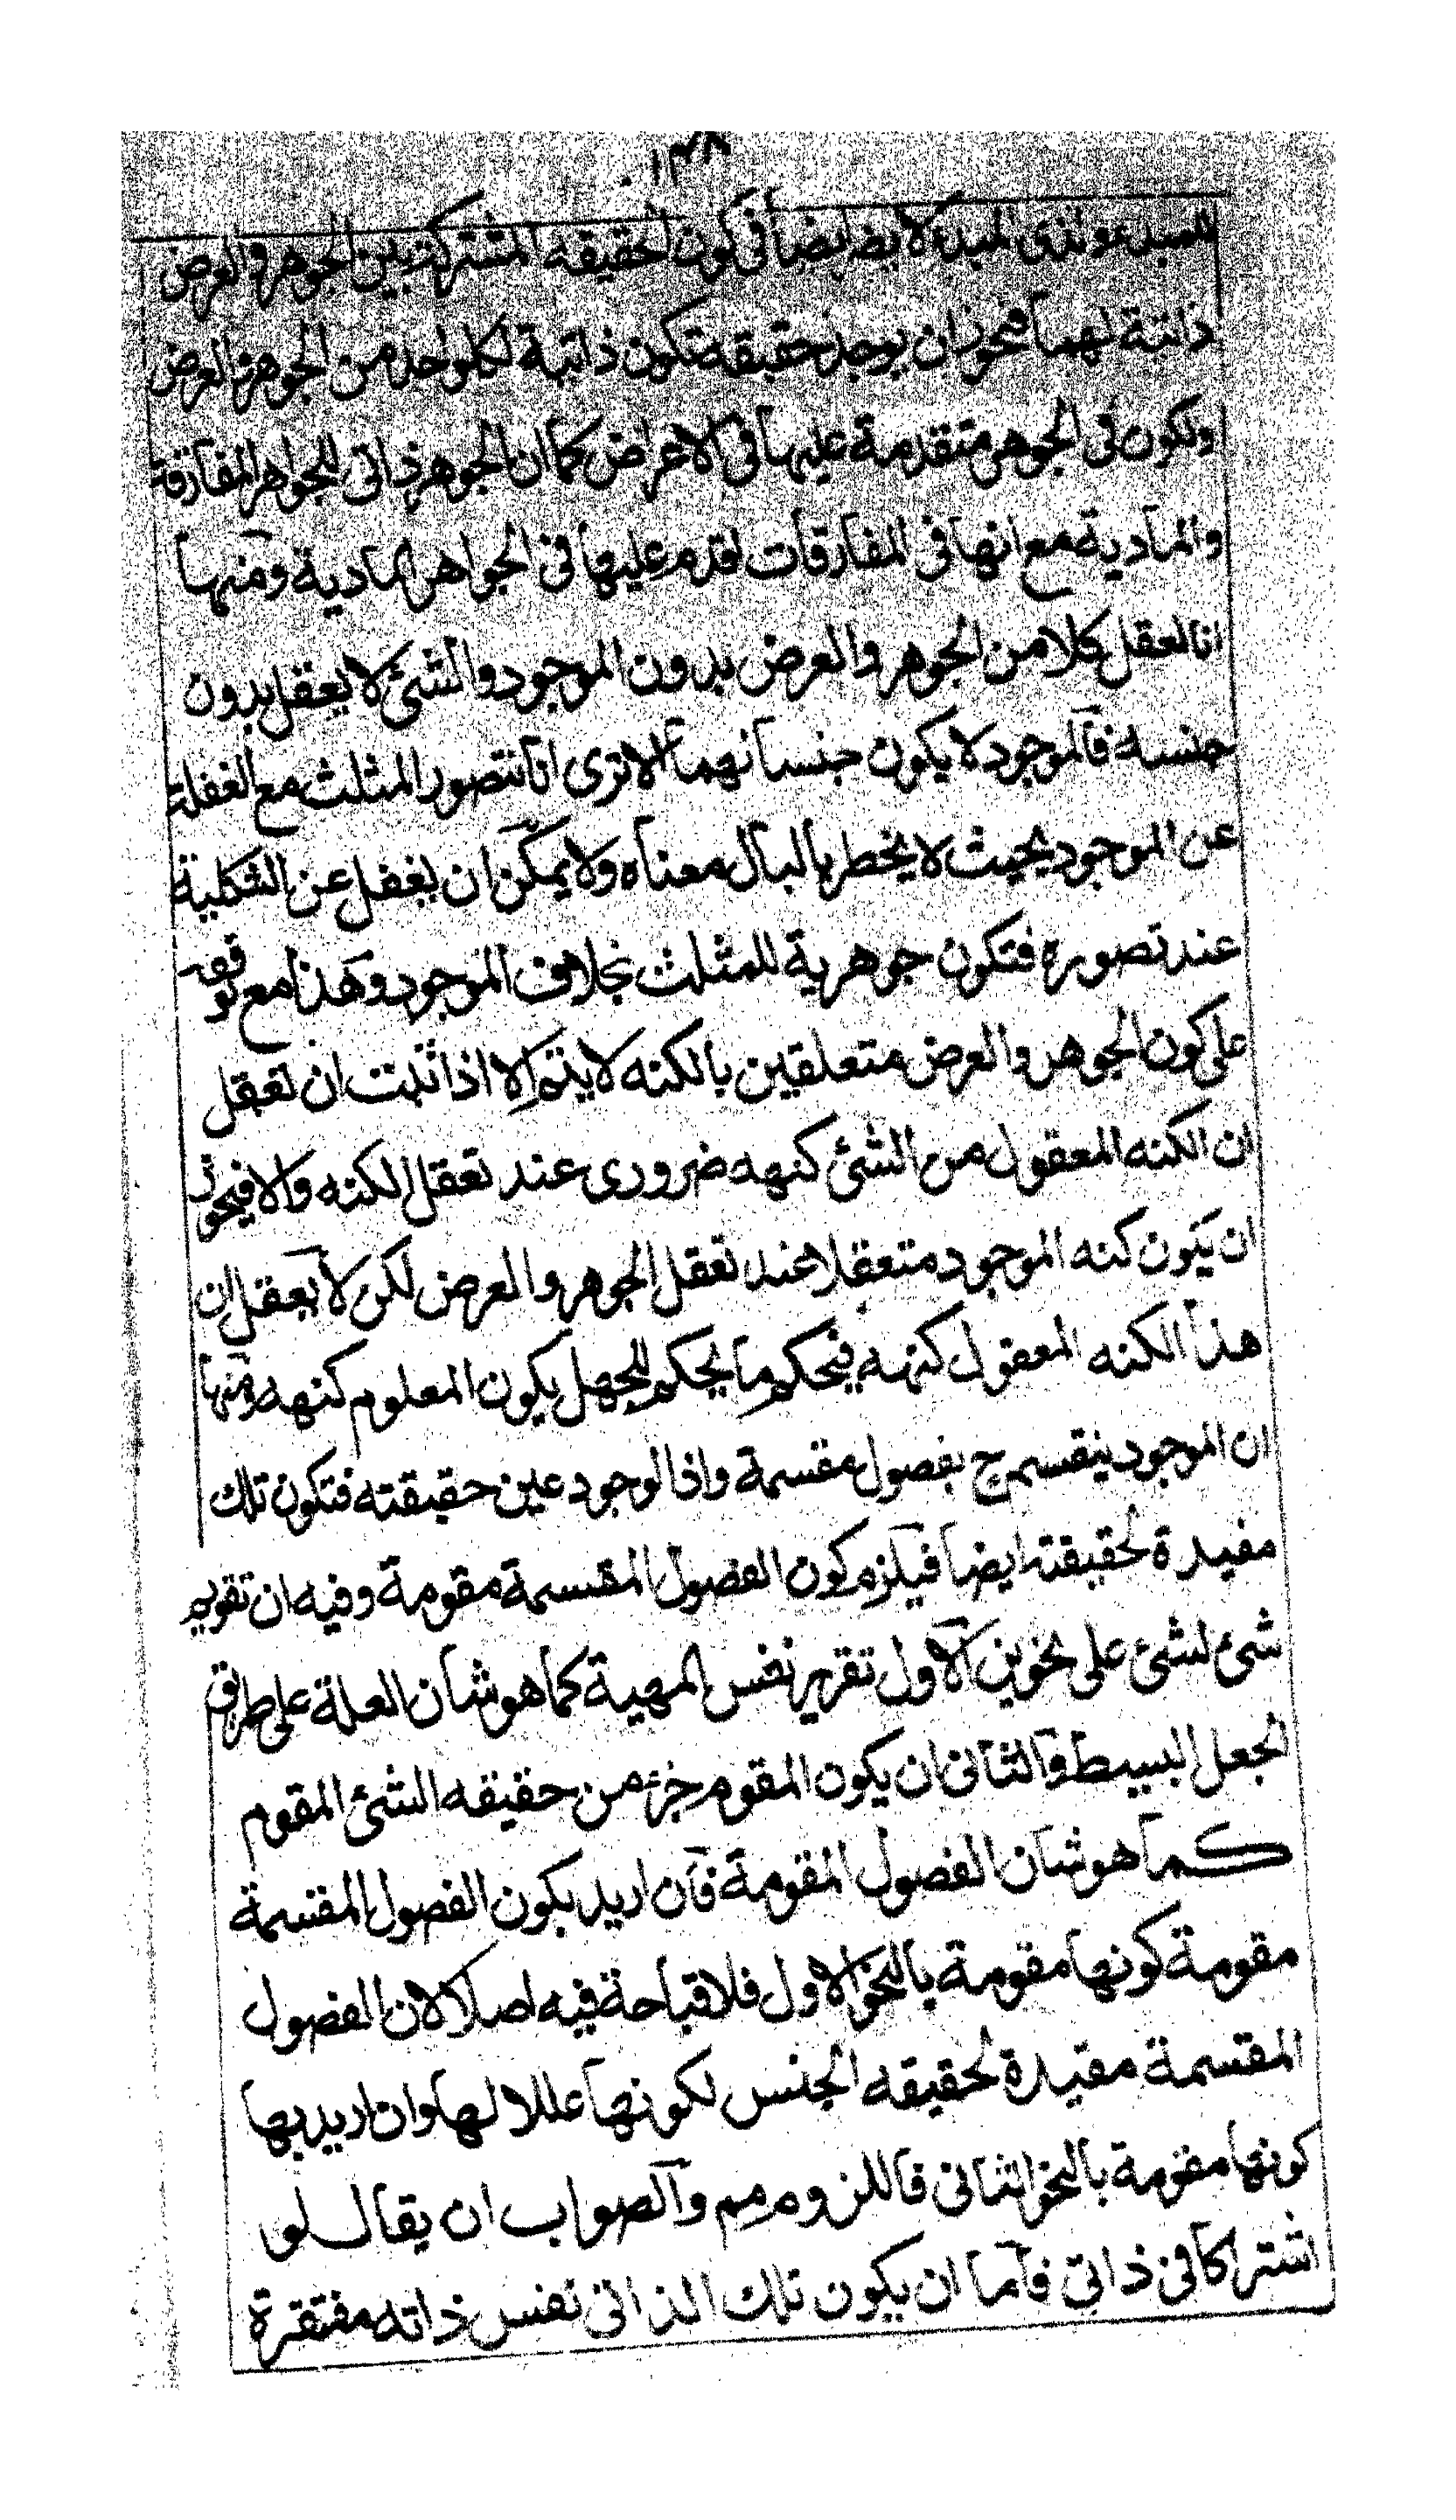 ١٣٨
للمبدء ولذى المبدء لا يضر ايضا فى كون الحقيقه المشتركة بين الجوهر والعرض
ذاتية لهما فيجوز ان يوجد حقيقة تكون ذاتية لكل واحد من الجوهر والعرض
وتكون فى الجوهر متقدمة عليها فى الاعراض كما ان الجوهر ذاتى للجواهر المفارقة
والمادية مع انها فى المفارقات اقدم عليها فى الجواهر المادية ومنها
انا نعقل كلا من الجوهر والعرض بدون الموجود والشئ لا يعقل بدون
جنسه فالموجود لا يكون جنسا لهما الا ترى انا نتصور المثلث مع الغفلة
عن الموجود بحيث لا يخطر بالبال معناه ولا يمكن ان يغفل عن الشكلية
عند تصوره فتكون جوهرية للمثلث بخلاف الموجود وهذا مع توقفه
على كون الجوهر والعرض متعلقين بالكنه لا يتم الا اذا ثبت ان تعقل
ان الكنه المعقول من الشئ كنهه ضرورى عند تعقل الكنه والا فيجوز
ان يكون كنه الموجود متعقلا عند تعقل الجوهر والعرض لكن لا يعقل ان
هذا الكنه المعقول كنهه فيحكم ما يحكم للجهل بكون المعلوم كنهه ومنها
ان الموجود ينقسم ح بفصول مقسمة واذا لوجود عين حقيقته فتكون تلك
مفيدة لحقيقته ايضا فيلزم كون الفصول المقسمة مقومة وفيه ان تقويم
شئ لشئ على نحوين الاول تقرير نفس المهية كما هو شأن العلة على طريق
الجعل البسيط والثانى ان يكون المقوم جزء من حقيقه الشئ المقوم
كما هو شان الفصول المقومة فان اريد بكون الفصول المقسمة
مقومة كونها مقومة بالنحو الاول فلا قباحة فيه اصلا لان الفصول
المقسمة مفيدة لحقيقه الجنس لكونها عللا لها وان اريد بها
كونها مقومة بالنحو الثانى فاللزوم مم والصواب ان يقال لو
اشتركا فى ذاتى فاما ان يكون تلك الذاتى نفس ذاته مفتقرة